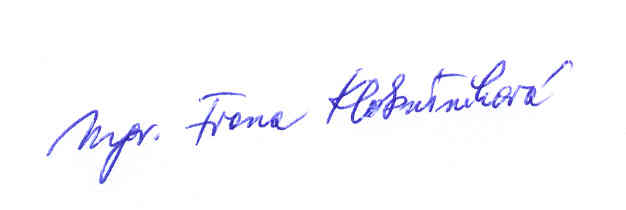 Mgr. Irena Klobušníková